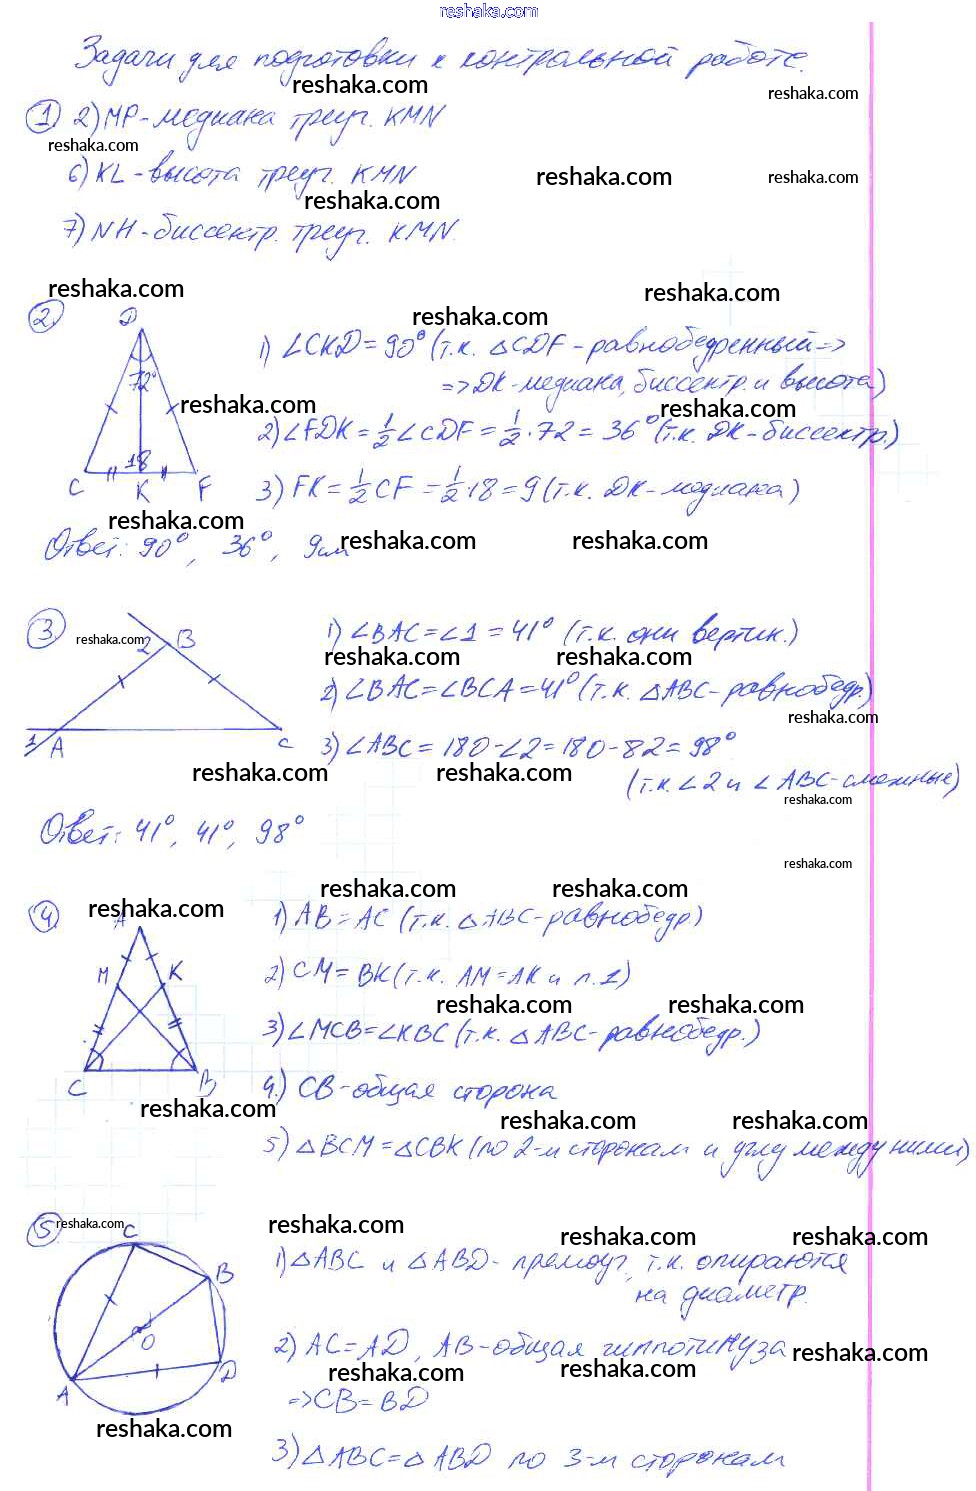 reshaka.com
Задачи для подготовки к контрольной работе.
reshaka.com reshaka.com
1. 2) MP-медиана треуг. KMN
reshaka.com
6) KL-высота треуг. KMN
reshaka.com reshaka.com
reshaka.com
7) NH-биссектр. треуг. KMN.
reshaka.com reshaka.com
reshaka.com
2. D
1) ∠CKD=90° (т.к. △CDF-равнобедренный=>
=>DK-медиана, биссектр. и высота)
72°
reshaka.com reshaka.com
2) ∠FDK=1/2∠CDF=1/2·72=36° (т.к. DK-биссектр.)
18
C K F
3) FK=1/2CF=1/2·18=9 (т.к. DK-медиана)
reshaka.com
Ответ: 90°, 36°, 9см
reshaka.com reshaka.com
3. reshaka.com
2 B
1) ∠BAC=∠1=41° (т.к. они вертик.)
reshaka.com reshaka.com
2) ∠BAC=∠BCA=41° (т.к. △ABC-равнобедр.)
reshaka.com
1 A C
3) ∠ABC=180-∠2=180-82=98°
reshaka.com reshaka.com
(т.к. ∠2 и ∠ABC-смежные)
reshaka.com
Ответ: 41°, 41°, 98°
reshaka.com
reshaka.com reshaka.com
4. reshaka.com
A
1) AB=AC (т.к. △ABC-равнобедр)
M K
2) CM=BK (т.к. AM=AK и п.1)
reshaka.com reshaka.com
3) ∠MCB=∠KBC (т.к. △ABC-равнобедр.)
C B
4) CB-общая сторона
reshaka.com reshaka.com reshaka.com
5) △BCM=△CBK (по 2-м сторонам и углу между ними)
5. reshaka.com
reshaka.com
reshaka.com reshaka.com
C
1) △ABC и △ABD-прямоуг, т.к. опираются
на диаметр.
B
O
2) AC=AD, AB-общая гиппотинуза
reshaka.com
reshaka.com reshaka.com
D
A
=>CB=BD
reshaka.com
3) △ABC=△ABD по 3-м сторонам